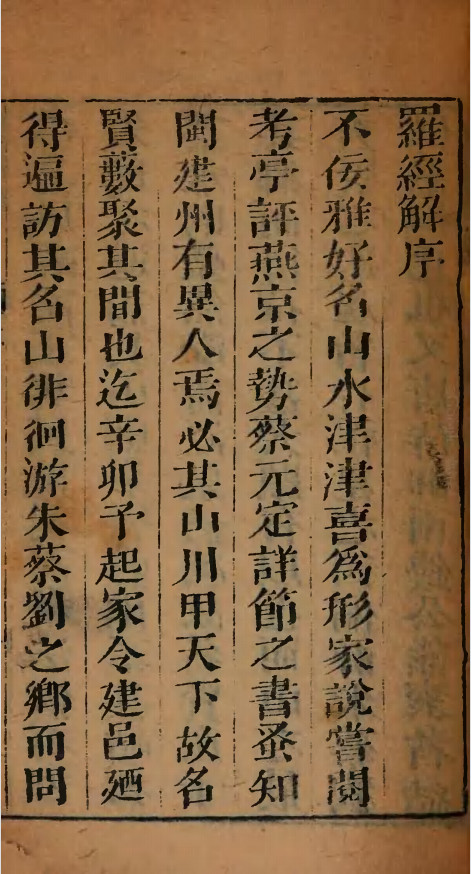 羅經解序
不佞雅好名山水津津喜爲形家說嘗閱
考亭評燕京之勢蔡元定詳節之書蚤知
閩建州有異人焉必其山川甲天下故名
賢藪聚其間也迄辛卯予起家令建邑廼
得遍訪其名山徘徊游朱蔡劉之鄉而問